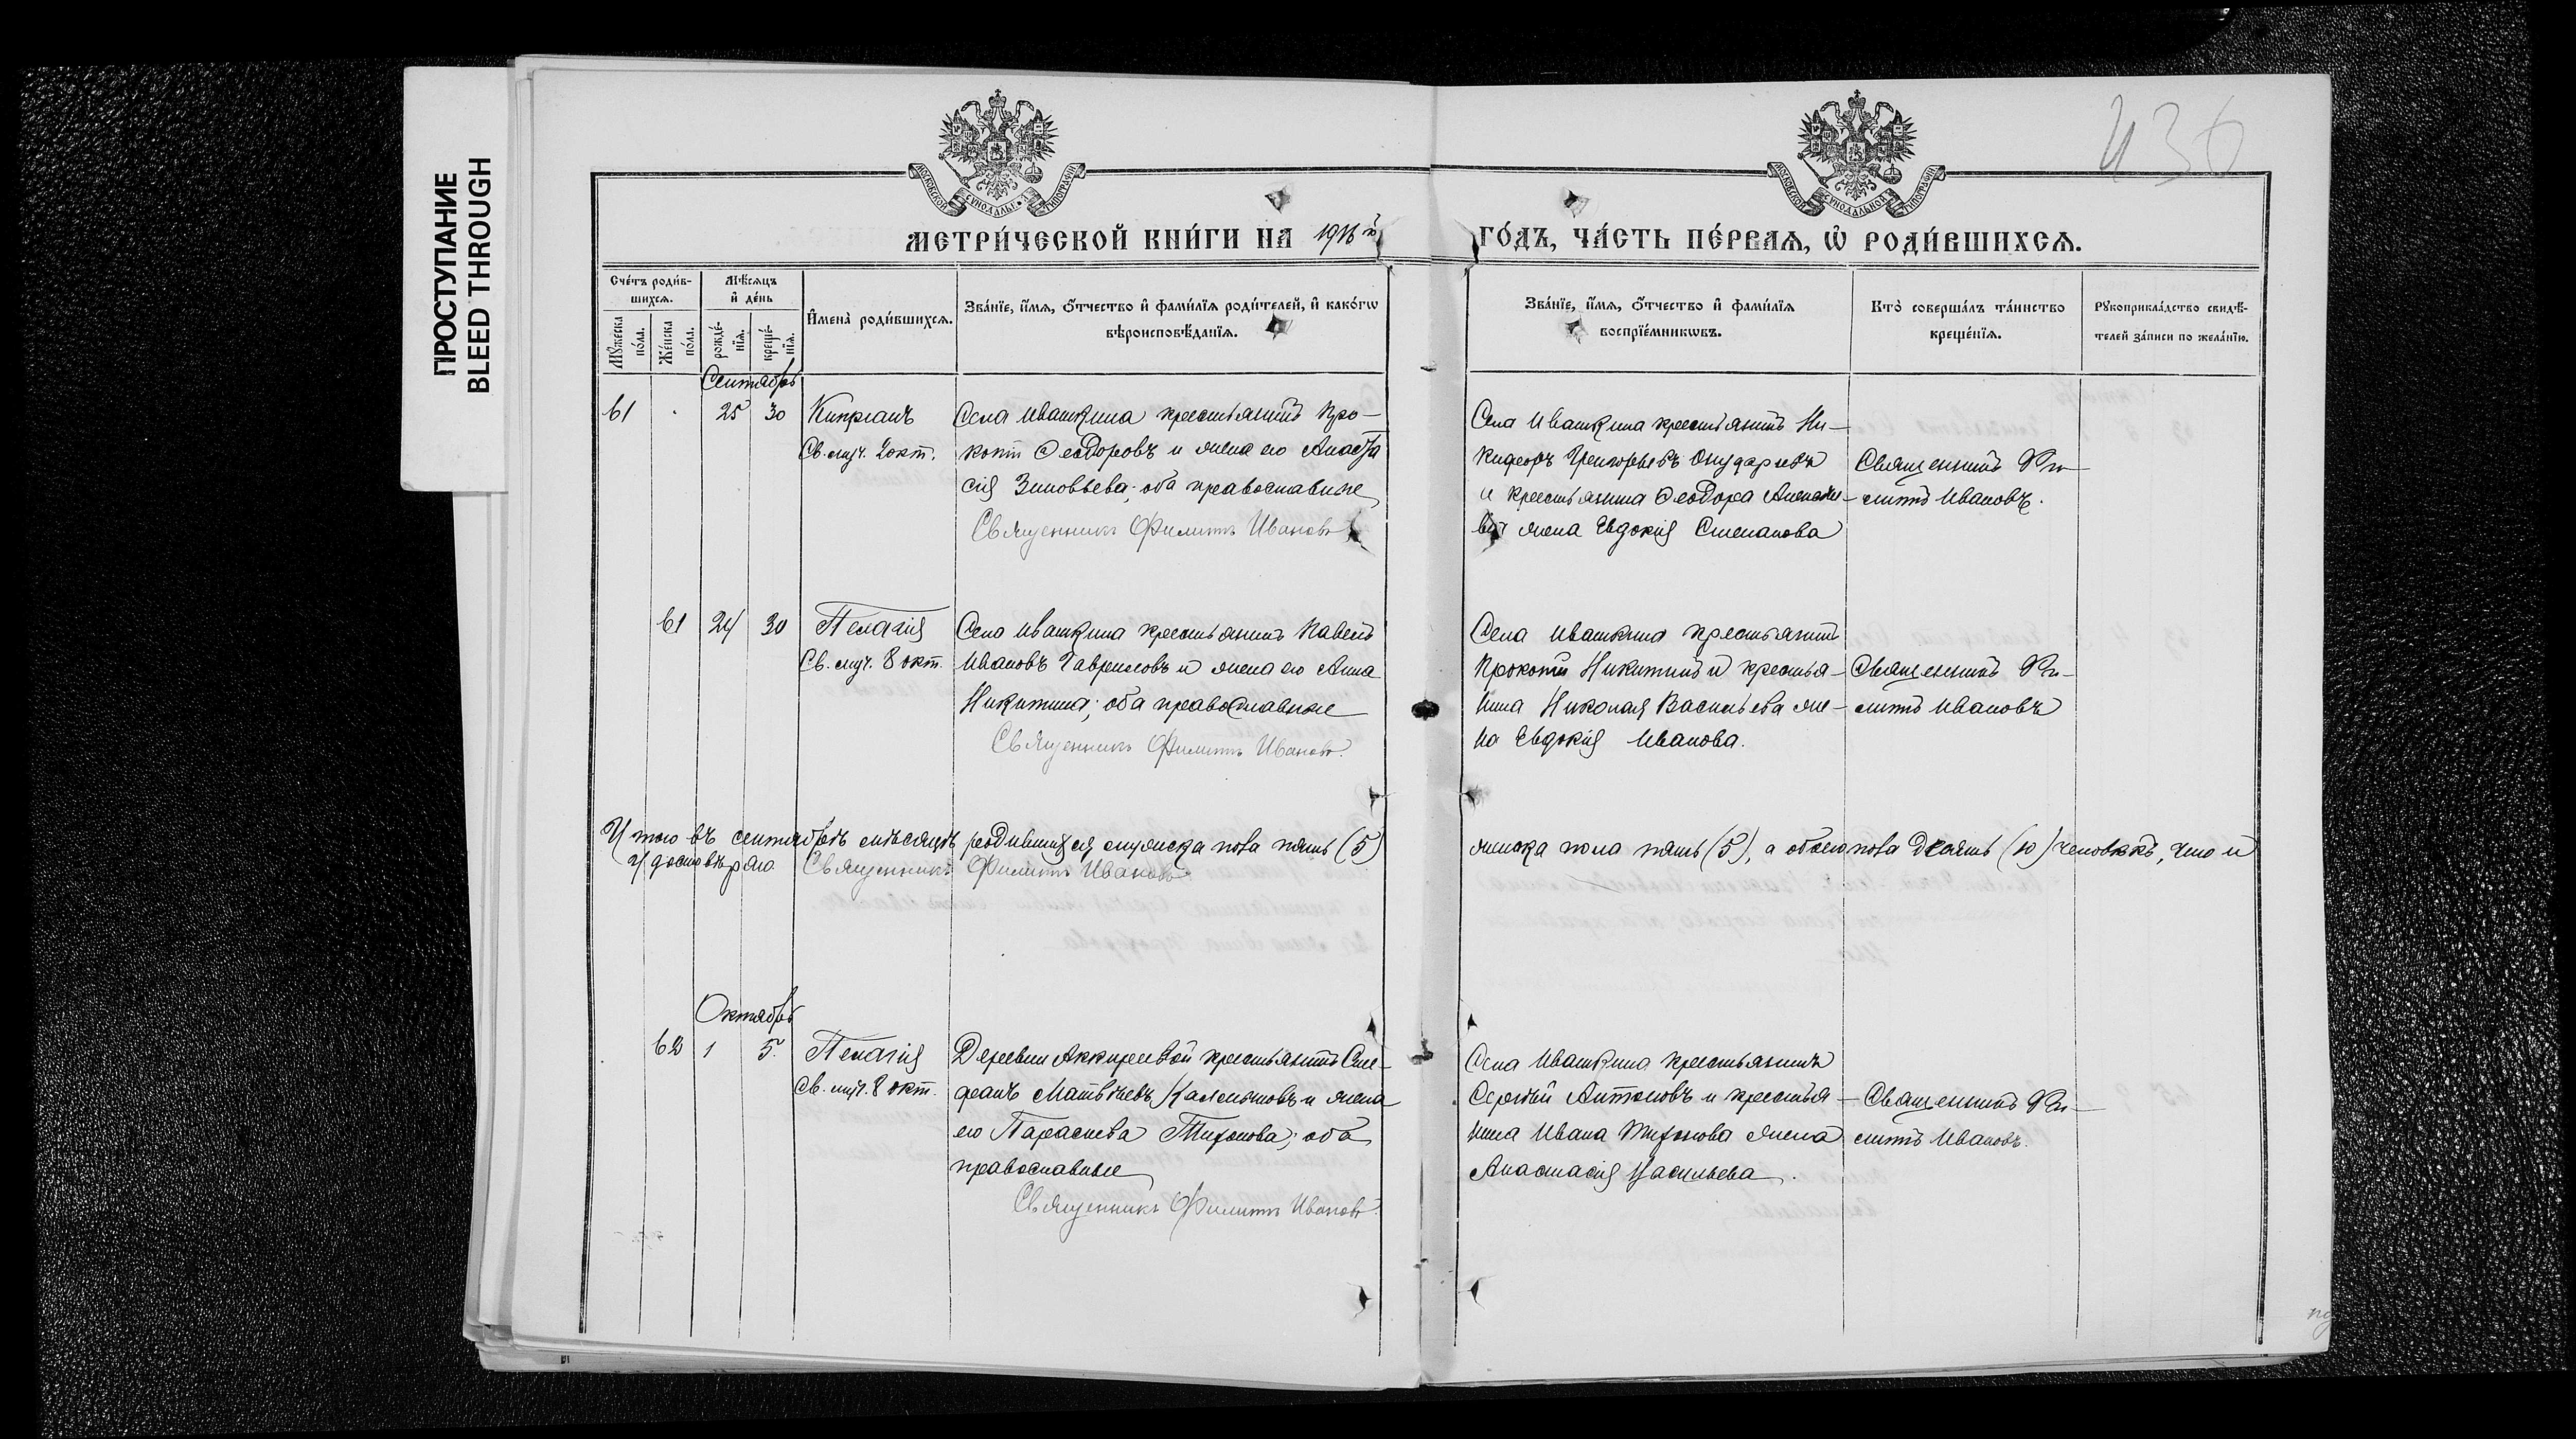 ПРОСТУПАНИЕ
BLEED THROUGH
436
МОСКОВСКОЙ СѴНОДАЛЬНОЙ ТИПОГРАФІИ
МОСКОВСКОЙ СѴНОДАЛЬНОЙ ТИПОГРАФІИ
МЕТРИ́ЧЕСКОЙ КНИ́ГИ НА 1916й ГО́ДЪ, ЧА́СТЬ ПЕ́РВАѦ, Ѡ҆ РОДИ́ВШИХСѦ.
Сче́тъ роди́в-
шихсѧ.
Мѣ́сѧцъ
и҆ де́нь
Мꙋ́жеска
по́ла.
Же́нска
по́ла.
рожде́-
нїѧ.
креще́-
нїѧ.
И҆мена̀ роди́вшихсѧ.
Зва́нїе, и҆́мѧ, ѻ҆́тчество и҆ фами́лїѧ роди́телей, и҆ како́гѡ
вѣроисповѣ́данїѧ.
Зва́нїе, и҆́мѧ, ѻ҆́тчество и҆ фами́лїѧ
воспрїе́мникѡвъ.
Кто̀ соверша́лъ та́инство
креще́нїѧ.
Рꙋкоприкла́дство свидѣ́-
телей за́писи по жела́нїю.
Сентябрь
61 25 30 Кипріанъ
Св. муч. 2 окт.
Села Ивашкина крестьянинъ Про-
копій Ѳеодоровъ и жена его Анаста
сія Зиновьева; оба православные
Священникъ Филиппъ Ивановъ
Села Ивашкина крестьянинъ Ни-
кифоръ Григорьевъ
и крестьянина Ѳеодора
жена Евдокія Степанова
Священникъ Фи-
липпъ Ивановъ.
61 24 30 Пелагія
Св. муч. 8 окт.
Села Ивашкина крестьянинъ Павелъ
Ивановъ Гавриловъ и жена его Анна
Никитина; оба православные
Священникъ Филиппъ Ивановъ.
Села Ивашкина крестьянинъ
Прокопій Никитинъ и крестья-
нина Николая Васильева же-
на Евдокія Иванова.
Священникъ Фи-
липпъ Ивановъ
Итого въ сентябрѣ мѣсяцѣ родившихся мужеска пола пять (5) женска пола пять (5), а обоего пола десять (10) человѣкъ, что и
удостовѣряю Священникъ Филиппъ Ивановъ
Октябрь
62 1 5. Пелагія
Св. муч. 8 окт.
Деревни Аккиреевой крестьянинъ Сте-
фанъ Матвѣевъ и жена
его Параскева Тихонова; оба
православные
Священникъ Филиппъ Ивановъ.
Села Ивашкина крестьянинъ
Сергѣй Антоновъ и крестья-
нина Ивана Тихонова жена
Анастасія Васильева.
Священникъ Фи-
липпъ Ивановъ.